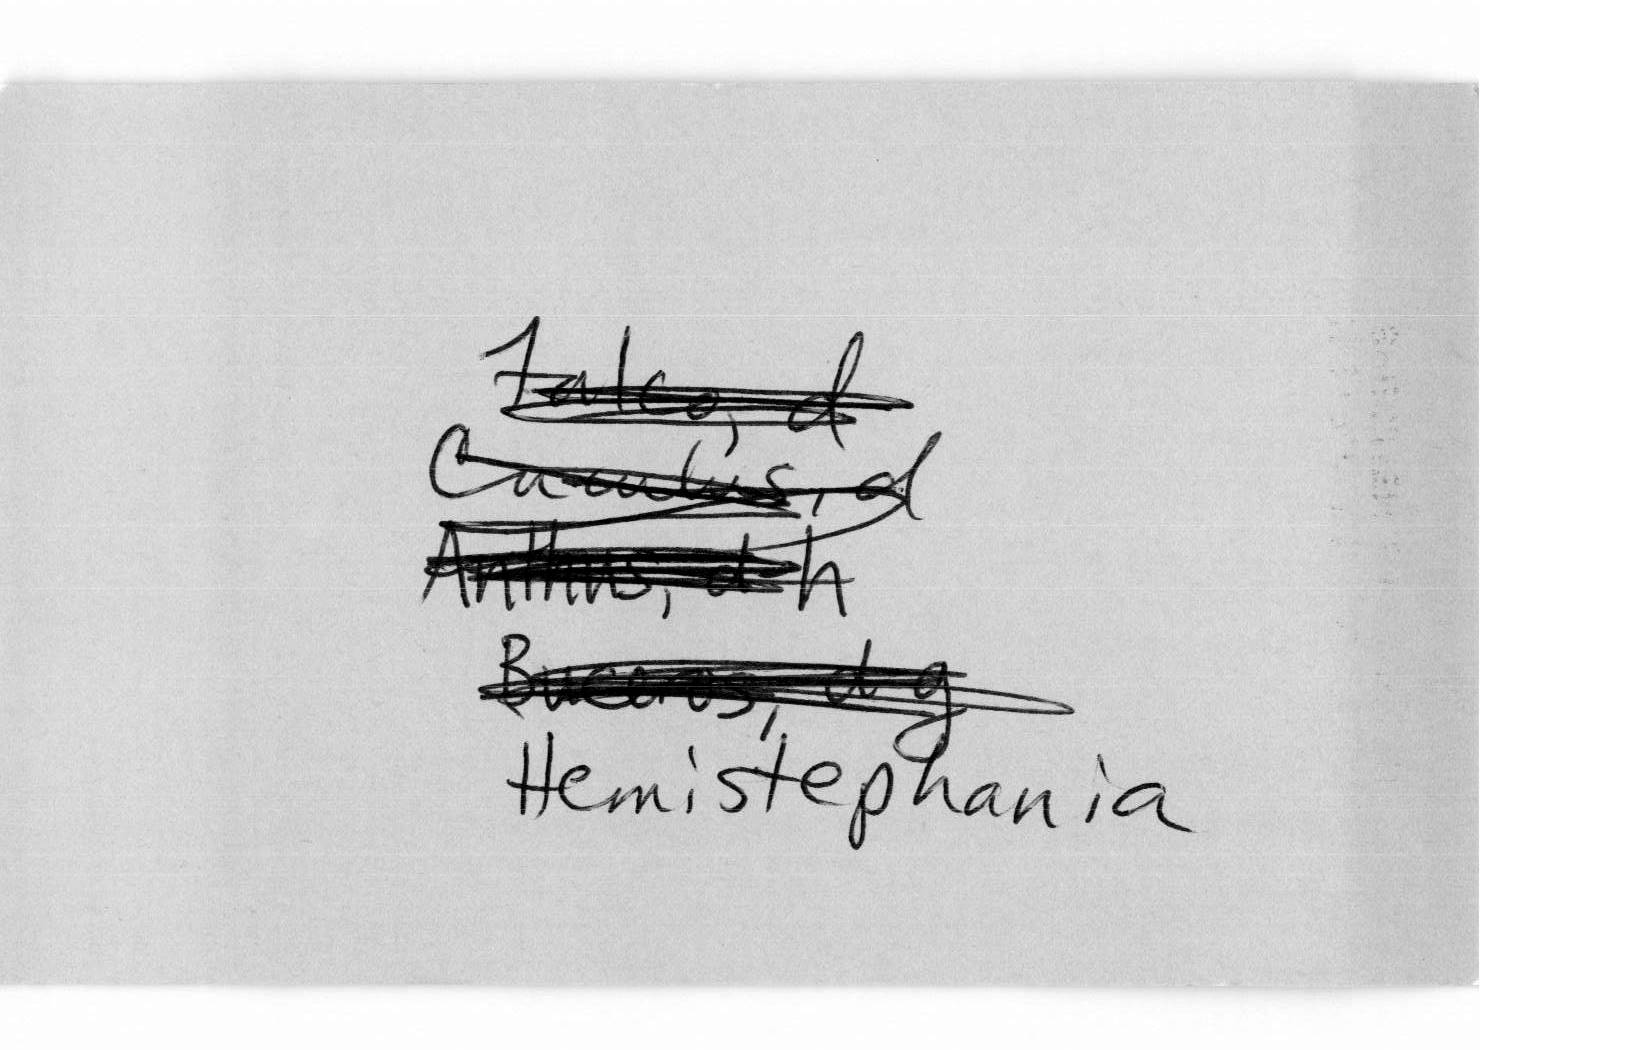 Falco, d
Cuculus, d
Anthus, d h
Buceros, d g
Hemistephania